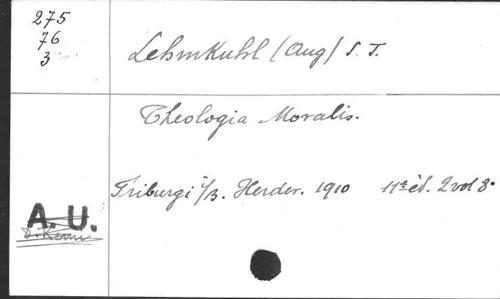 275
76
3
Lehmkuhl (Aug) S. J.
Theologia Moralis.
Friburgi i/B. Herder. 1910 11ª éd. 2 vol 8º
A. U.